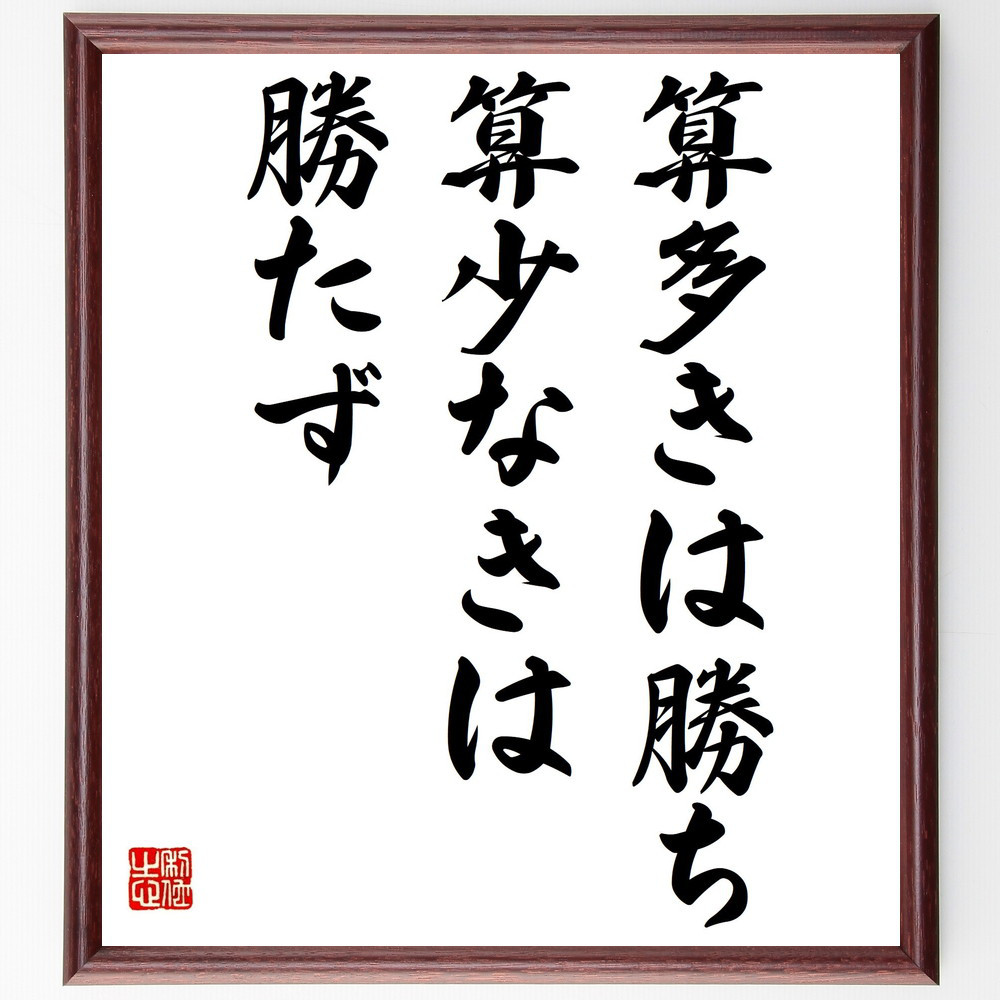 算多きは勝ち
算少なきは
勝たず